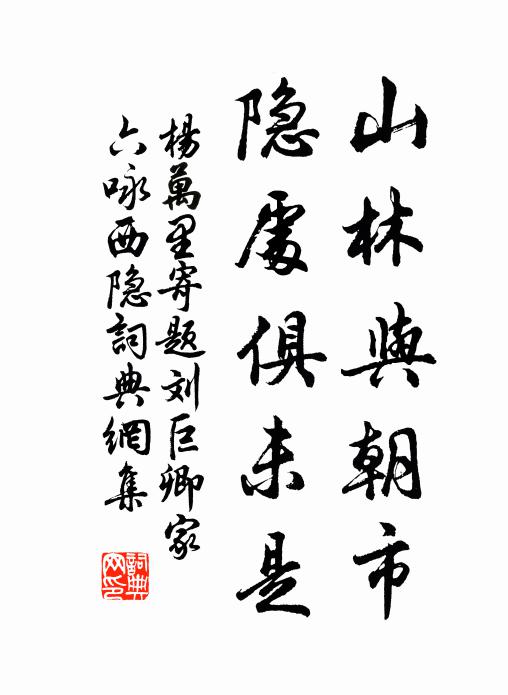 山林與朝市
隐處俱未是
楊萬里寄題刘巨卿家
六咏西隐詞典網集
詞典
网印